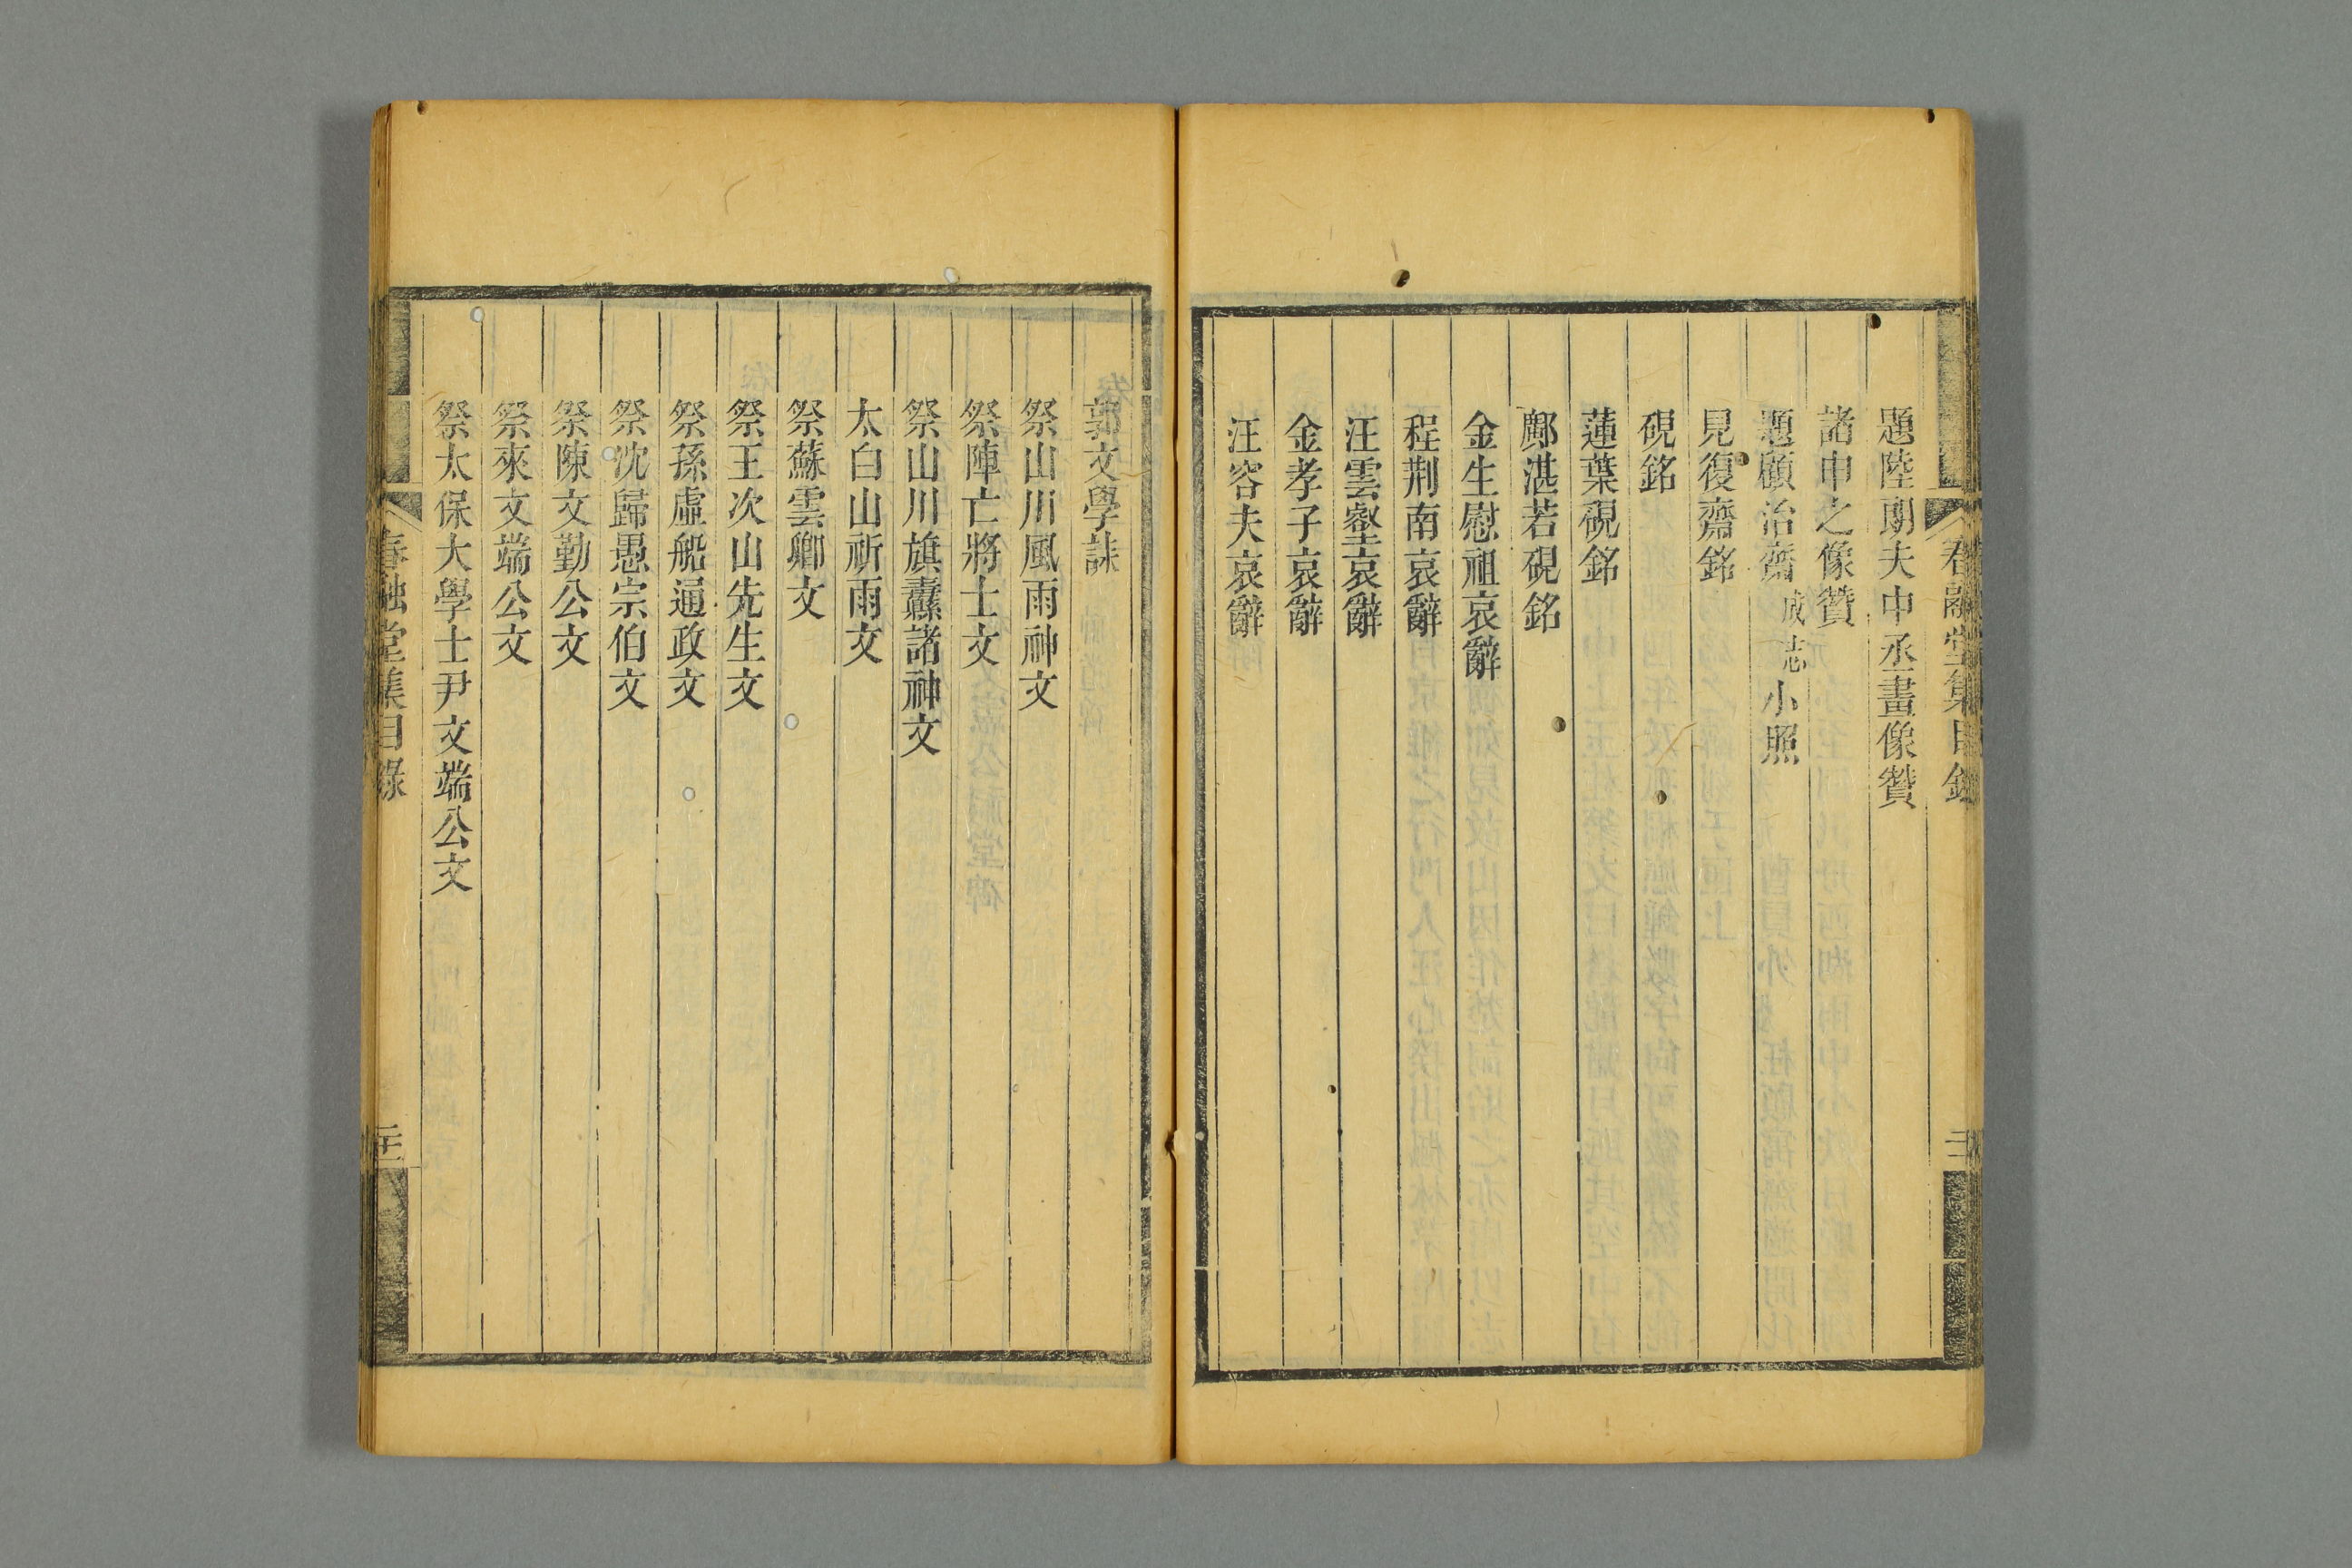 春融堂集目錄
題陸朗夫中丞畫像贊
諸申之像贊
題顧治齋成志小照
見復齋銘
硯銘
蓮葉硯銘
鄺湛若硯銘
金生慰祖哀辭
程荆南哀辭
汪雲壑哀辭
金孝子哀辭
汪容夫哀辭
郭文學誄
祭山川風雨神文
祭陣亡將士文
祭山川旗纛諸神文
太白山祈雨文
祭蘇雲卿文
祭王次山先生文
祭孫虛船通政文
祭沈歸愚宗伯文
祭陳文勤公文
祭來文端公文
祭太保大學士尹文端公文
春融堂集目錄